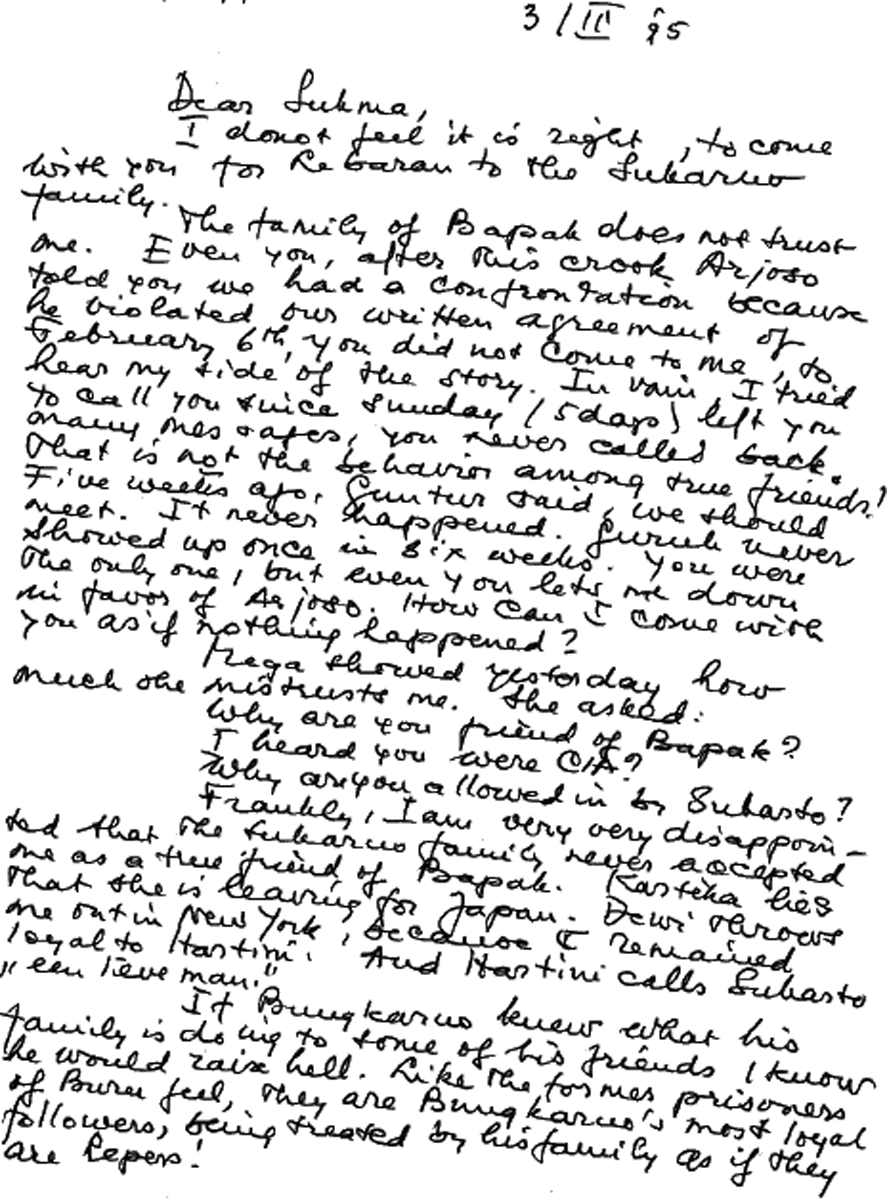 3/III '95
Dear Sukma,
I donot feel it is right, to come
with you for Lebaran to the Sukarno
family.
The family of Bapak does not trust
me. Even you, after this crook Arjoso
told you we had a confrontation because
he violated our written agreement of
February 6th, you did not come to me, to
hear my side of the story. In vain, I tried
to call you twice Sunday (5 days) left you
many messages, you never called back.
That is not the behavior among true friends!
Five weeks ago, Guntur said, we should
meet. It never happened. Guruh never
showed up once in six weeks. You were
the only one, but even you lets me down
in favor of Arjoso. How can I come with
you as if nothing happened?
Mega showed yesterday how
much she mistrusts me. She asked:
Why are you friend of Bapak?
I heard you were CIA?
Why are you allowed in by Suharto?
Frankly, I am very very disappoin-
ted that the Sukarno family never accepted
me as a true friend of Bapak. Kartika lies
that she is leaving for Japan. Dewi throws
me out in New York, because I remained
loyal to Hartini. And Hartini calls Suharto
„een lieve man."
If Bungkarno knew what his
family is doing to some of his friends I know
he would raise hell. Like the former prisoners
of Buru feel, they are Bungkarno's most loyal
followers, being treated by his family as if they
are lepers!